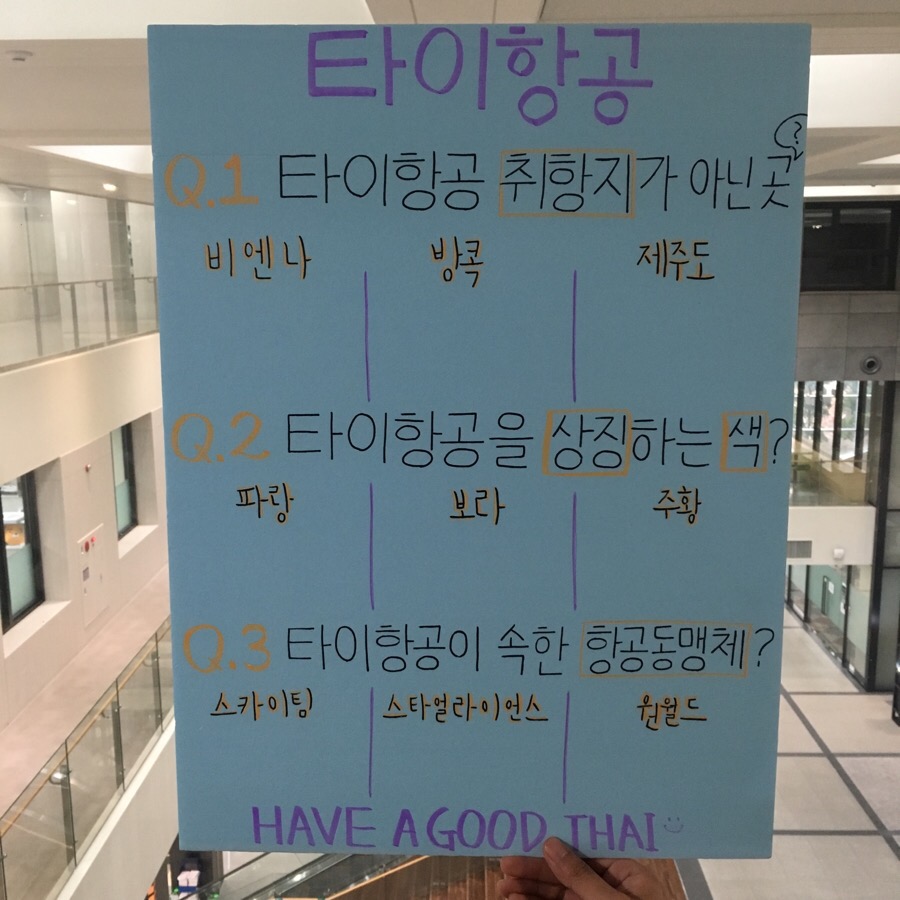 타이항공
Q.1 타이항공 취항지가 아닌 곳?
비엔나 방콕 제주도
Q.2 타이항공을 상징하는 색?
파랑 보라 주황
Q.3 타이항공이 속한 항공동맹체?
스카이팀 스타얼라이언스 원월드
HAVE A GOOD THAI